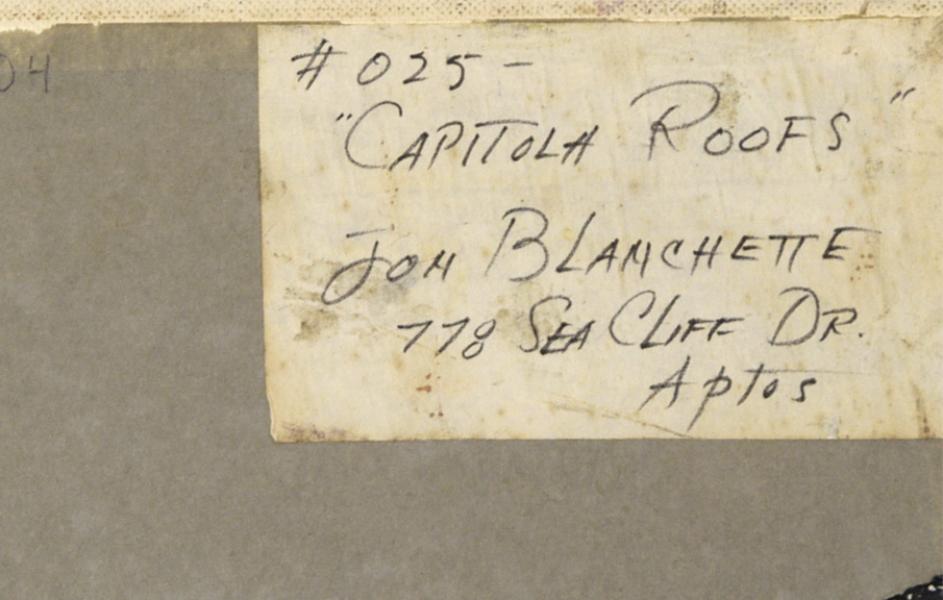 04
# 025 -
"CAPITOLA ROOFS"
JON BLANCHETTE
778 SEA CLIFF DR.
Aptos